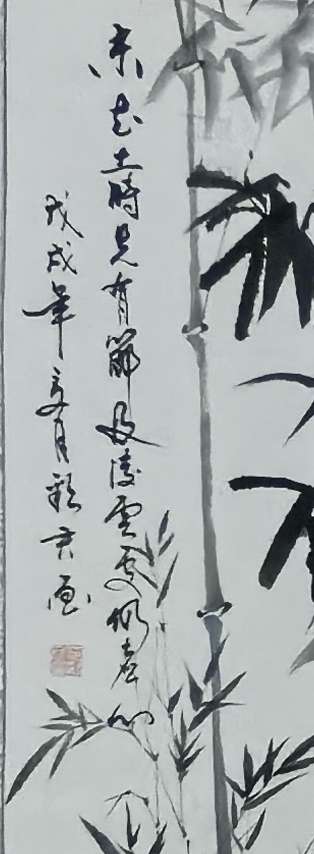 未出土時先有節及凌雲處仍虛心
戊戌年夏月 画